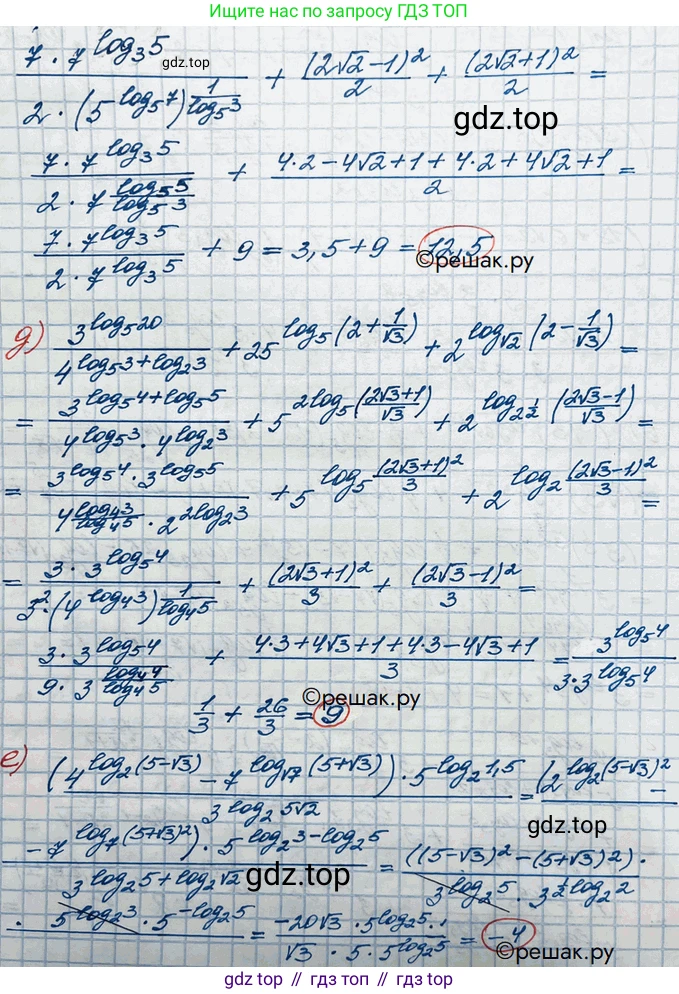 Пишите нам по запросу ГДЗ ТОП
7 · 7^{log_3 5} / (2 · (5^{log_5 7})^{1/log_5 3}) + (2√2−1)²/2 + (2√2+1)²/2 =
гдз.top
гдз.top
7 · 7^{log_3 5} / (2 · 7^{log_5 5/log_5 3}) + (4·2−4√2+1+4·2+4√2+1)/2 =
7 · 7^{log_3 5} / (2 · 7^{log_3 5}) + 9 = 3,5+9 = 12,5
©решак.ру
д) 3^{log_5 20} / 4^{log_5 3+log_2 3} + 25^{log_5(2+1/√3)} + 2^{log_{√2}(2−1/√3)} =
= 3^{log_5 4+log_5 5} / (4^{log_5 3} · 4^{log_2 3}) + 5^{2log_5((2√3+1)/√3)} + 2^{log_{2^{1/2}}((2√3−1)/√3)} =
= 3^{log_5 4} · 3^{log_5 5} / (4^{log_4 3/log_4 5} · 2^{2log_2 3}) + 5^{log_5 (2√3+1)²/3} + 2^{log_2 (2√3−1)²/3} =
= 3 · 3^{log_5 4} / (3² · (4^{log_4 3})^{1/log_4 5}) + (2√3+1)²/3 + (2√3−1)²/3 =
3 · 3^{log_5 4} / (9 · 3^{log_4 4/log_4 5}) + (4·3+4√3+1+4·3−4√3+1)/3 = 3^{log_5 4} / (3·3^{log_5 4})
1/3 + 26/3 = 9
©решак.ру
е) (4^{log_2(5−√3)} − 7^{log_{√7}(5+√3)}) · 5^{log_2 1,5} / 3^{log_2 5√2} = (2^{log_2(5−√3)²} −
гдз.top
−7^{log_7(5+√3)²}) · 5^{log_2 3−log_2 5} / 3^{log_2 5+log_2 √2} = ((5−√3)²−(5+√3)²) · / (3^{log_2 5} · 3^{½log_2 2})
гдз.top
· 5^{log_2 3} · 5^{−log_2 5} = −20√3 · 5^{log_2 5} · / (√3 · 5 · 5^{log_2 5}) = −4
©решак.ру
гдз top // гдз топ // гдз.top